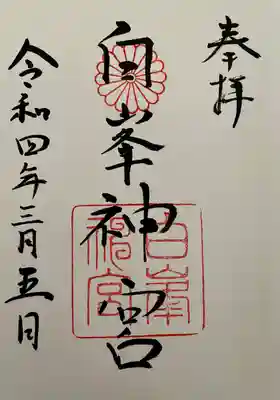 奉拝
白峯神宮
白峯神宮
令和四年三月五日